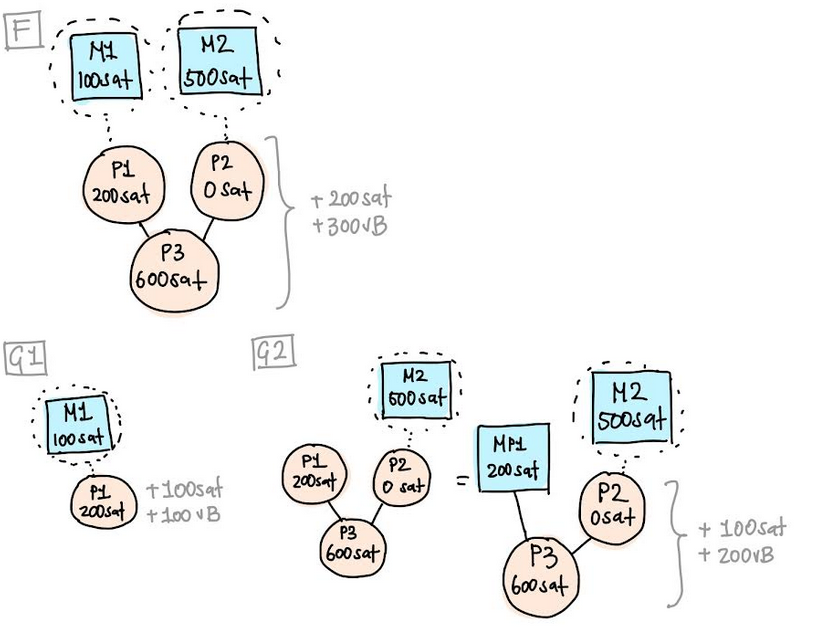 F
M1
100sat
M2
500sat
P1
200sat
P2
0 sat
P3
600sat
+ 200sat
+ 300vB
G1
M1
100sat
P1
200sat
+100sat
+100 vB
G2
M2
500sat
P1
200sat
P2
0 sat
P3
600sat
=
MP1
200sat
M2
500sat
P2
0sat
P3
600sat
+ 100sat
+ 200vB